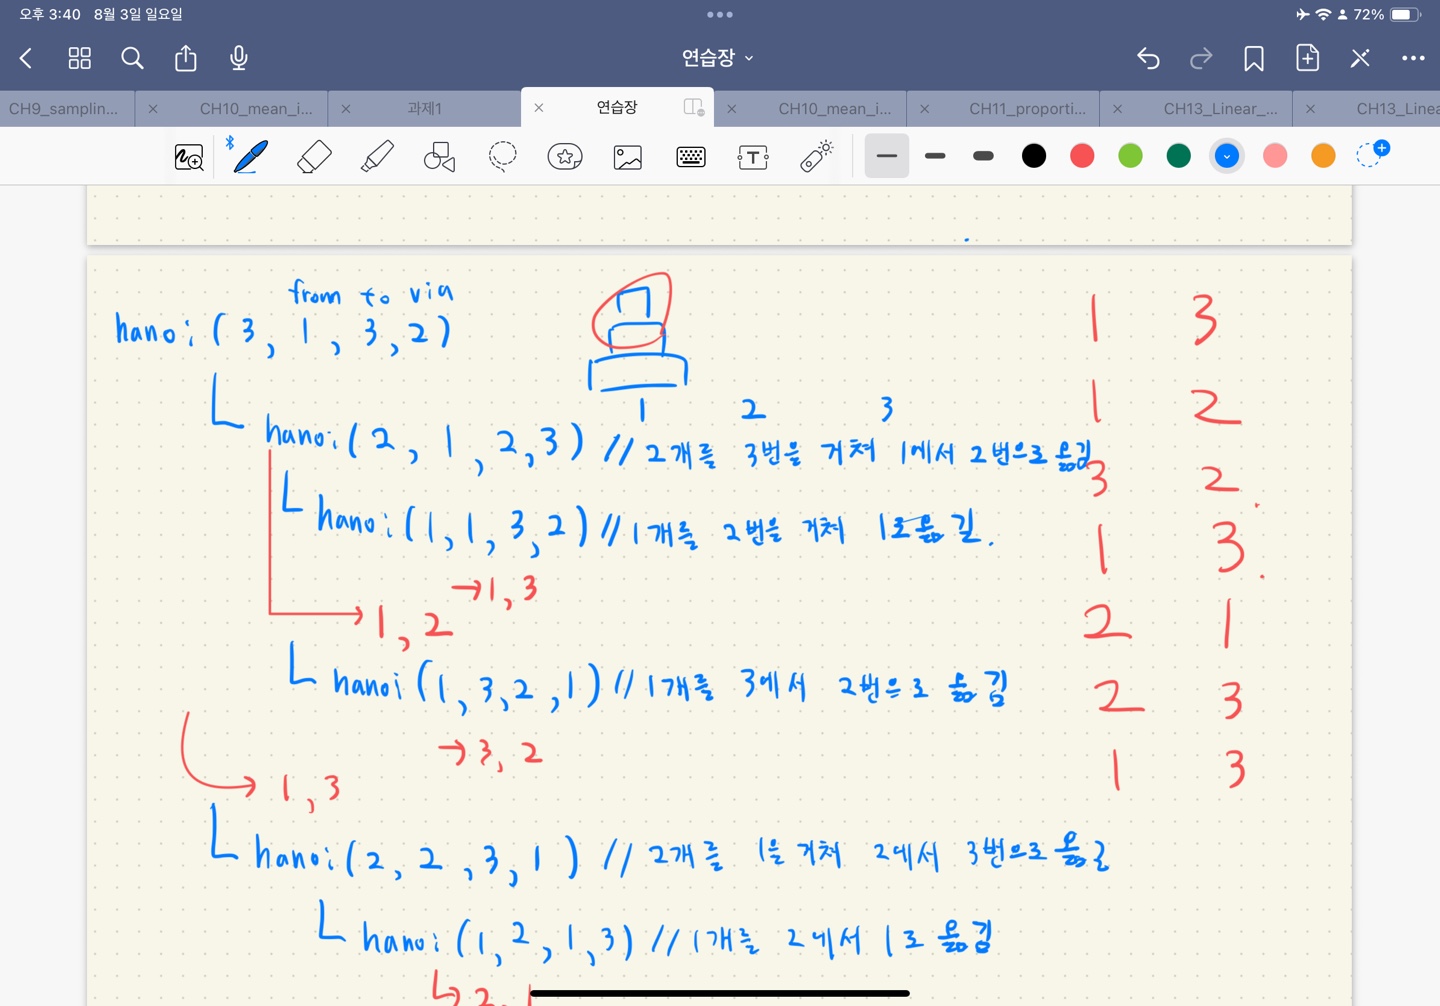 오후 3:40 8월 3일 일요일
72%
연습장
CH9_samplin...
CH10_mean_i...
과제1
연습장
CH10_mean_i...
CH11_proporti...
CH13_Linear_...
CH13_Linea
from to via
hanoi(3, 1, 3, 2)
1 2 3
hanoi(2, 1, 2, 3) // 2개를 3번을 거쳐 1에서 2번으로 옮김
hanoi(1, 1, 3, 2) // 1개를 2번을 거쳐 1로 옮김.
→1, 3
1, 2
hanoi(1, 3, 2, 1) // 1개를 3에서 2번으로 옮김
→3, 2
1, 3
hanoi(2, 2, 3, 1) // 2개를 1을 거쳐 2에서 3번으로
hanoi(1, 2, 1, 3) // 1개를 2에서 1로 옮김
2, 1
1 3
1 2
3 2
1 3
2 1
2 3
1 3